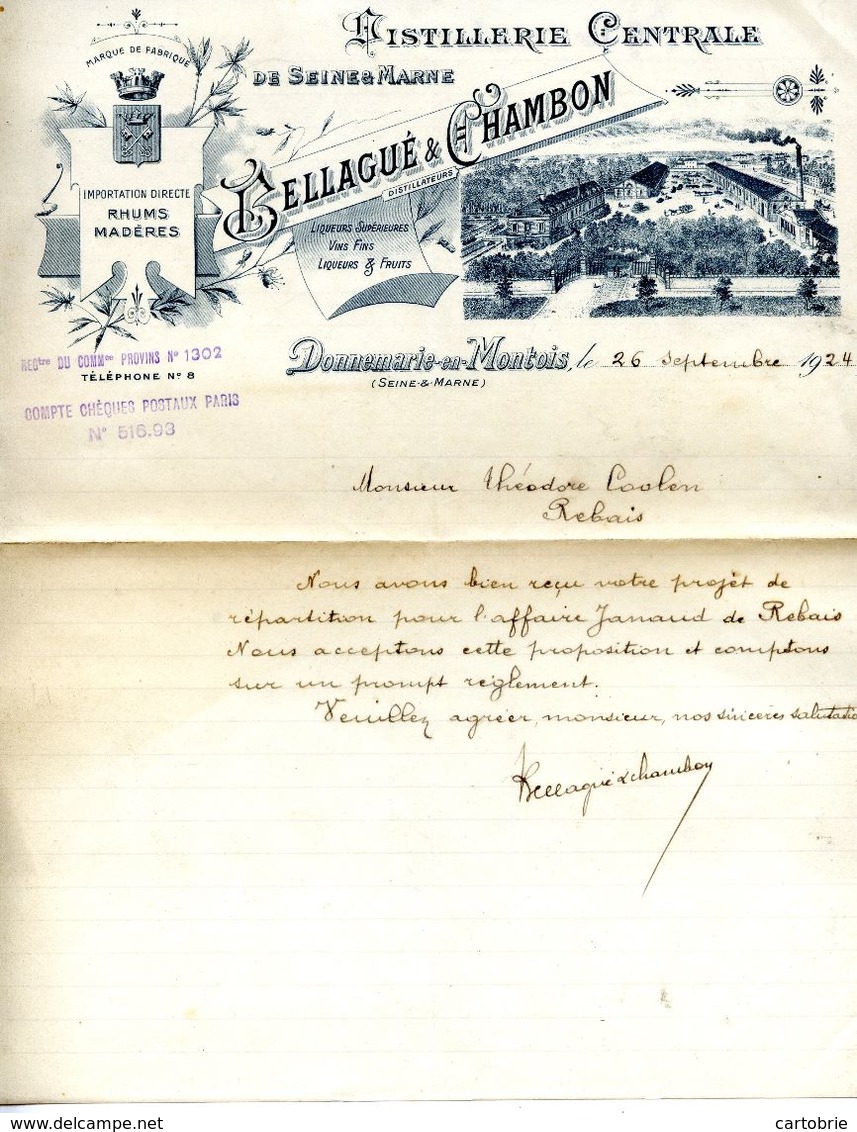 Distillerie Centrale
de Seine & Marne
MARQUE DE FABRIQUE
Bellagué & Chambon
DISTILLATEURS
IMPORTATION DIRECTE
RHUMS
MADÈRES
LIQUEURS SUPÉRIEURES
VINS FINS
LIQUEURS & FRUITS
REGtre DU COMMce PROVINS N° 1302
TÉLÉPHONE No 8
Donnemarie-en-Montois, le 26 septembre 1924
(SEINE-&-MARNE)
COMPTE CHÈQUES POSTAUX PARIS
N° 516.93
Monsieur Théodore Coolen
Rebais
Nous avons bien reçu votre projet de
répartition pour l'affaire Janaud de Rebais
Nous acceptons cette proposition et comptons
sur un prompt réglement.
Veuillez agréer, monsieur, nos sincères salutatio
Bellagué & chambon
delcampe.net
cartobrie